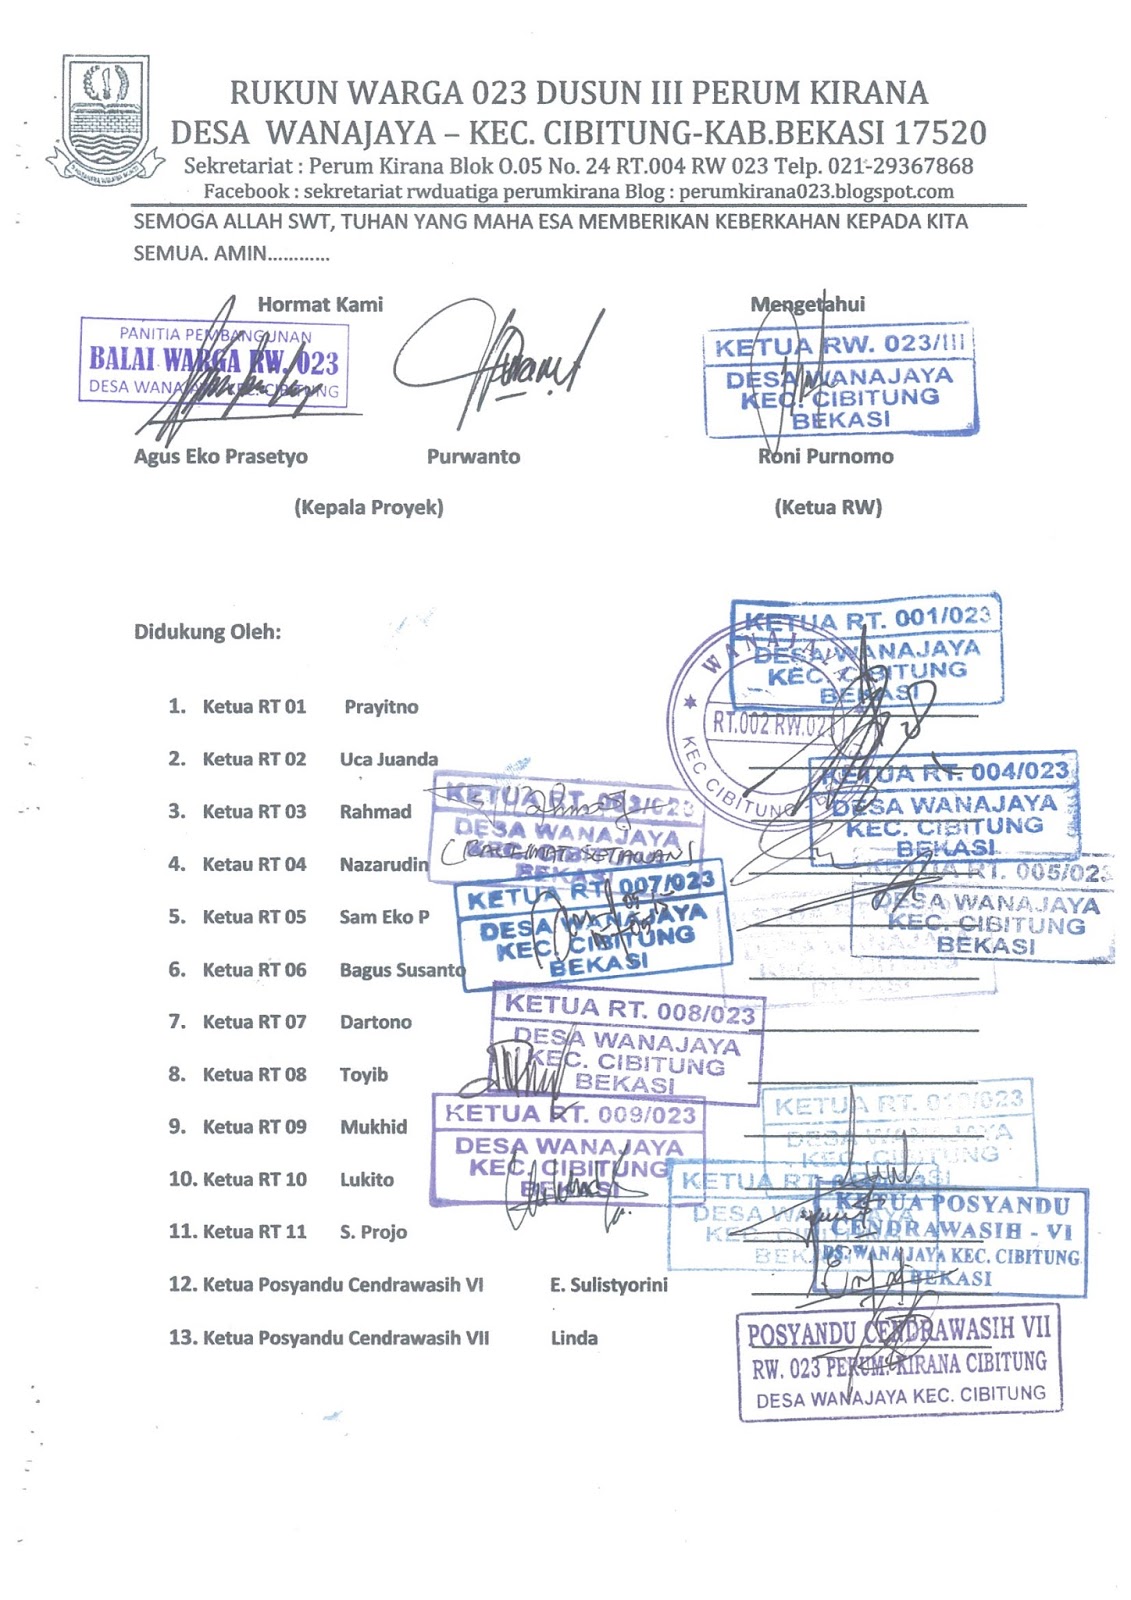 RUKUN WARGA 023 DUSUN III PERUM KIRANA
DESA WANAJAYA – KEC. CIBITUNG-KAB.BEKASI 17520
Sekretariat : Perum Kirana Blok O.05 No. 24 RT.004 RW 023 Telp. 021-29367868
Facebook : sekretariat rwduatiga perumkirana Blog : perumkirana023.blogspot.com
SEMOGA ALLAH SWT, TUHAN YANG MAHA ESA MEMBERIKAN KEBERKAHAN KEPADA KITA
SEMUA. AMIN............
Hormat Kami Mengetahui
PANITIA PEMBANGUNAN
BALAI WARGA RW. 023
DESA WANAJAYA KEC. CIBITUNG
KETUA RW. 023/III
DESA WANAJAYA
KEC. CIBITUNG
BEKASI
Agus Eko Prasetyo Purwanto Roni Purnomo
(Kepala Proyek) (Ketua RW)
Didukung Oleh:
KETUA RT. 001/023
DESA WANAJAYA
KEC. CIBITUNG
BEKASI
1. Ketua RT 01 Prayitno
WANAJAYA
RT.002 RW.023
KEC CIBITUNG
2. Ketua RT 02 Uca Juanda
KETUA RT. 004/023
DESA WANAJAYA
KEC. CIBITUNG
BEKASI
3. Ketua RT 03 Rahmad
KETUA RT.
DESA WANAJAYA
BEKASI
4. Ketau RT 04 Nazarudin
KETUA RT. 005/023
DESA WANAJAYA
KEC. CIBITUNG
BEKASI
KETUA RT. 007/023
DESA WANAJAYA
KEC. CIBITUNG
BEKASI
5. Ketua RT 05 Sam Eko P
6. Ketua RT 06 Bagus Susanto
KETUA RT. 008/023
DESA WANAJAYA
KEC. CIBITUNG
BEKASI
7. Ketua RT 07 Dartono
8. Ketua RT 08 Toyib
KETUA RT. 009/023
DESA WANAJAYA
KEC. CIBITUNG
BEKASI
9. Ketua RT 09 Mukhid
KETUA RT.
DESA WANAJAYA
KEC. CIBITUNG
10. Ketua RT 10 Lukito
KETUA RT.
DESA WANAJAYA
11. Ketua RT 11 S. Projo
KETUA POSYANDU
CENDRAWASIH - VI
DS. WANAJAYA KEC. CIBITUNG
BEKASI
12. Ketua Posyandu Cendrawasih VI E. Sulistyorini
13. Ketua Posyandu Cendrawasih VII Linda
POSYANDU CENDRAWASIH VII
RW. 023 PERUM. KIRANA CIBITUNG
DESA WANAJAYA KEC. CIBITUNG